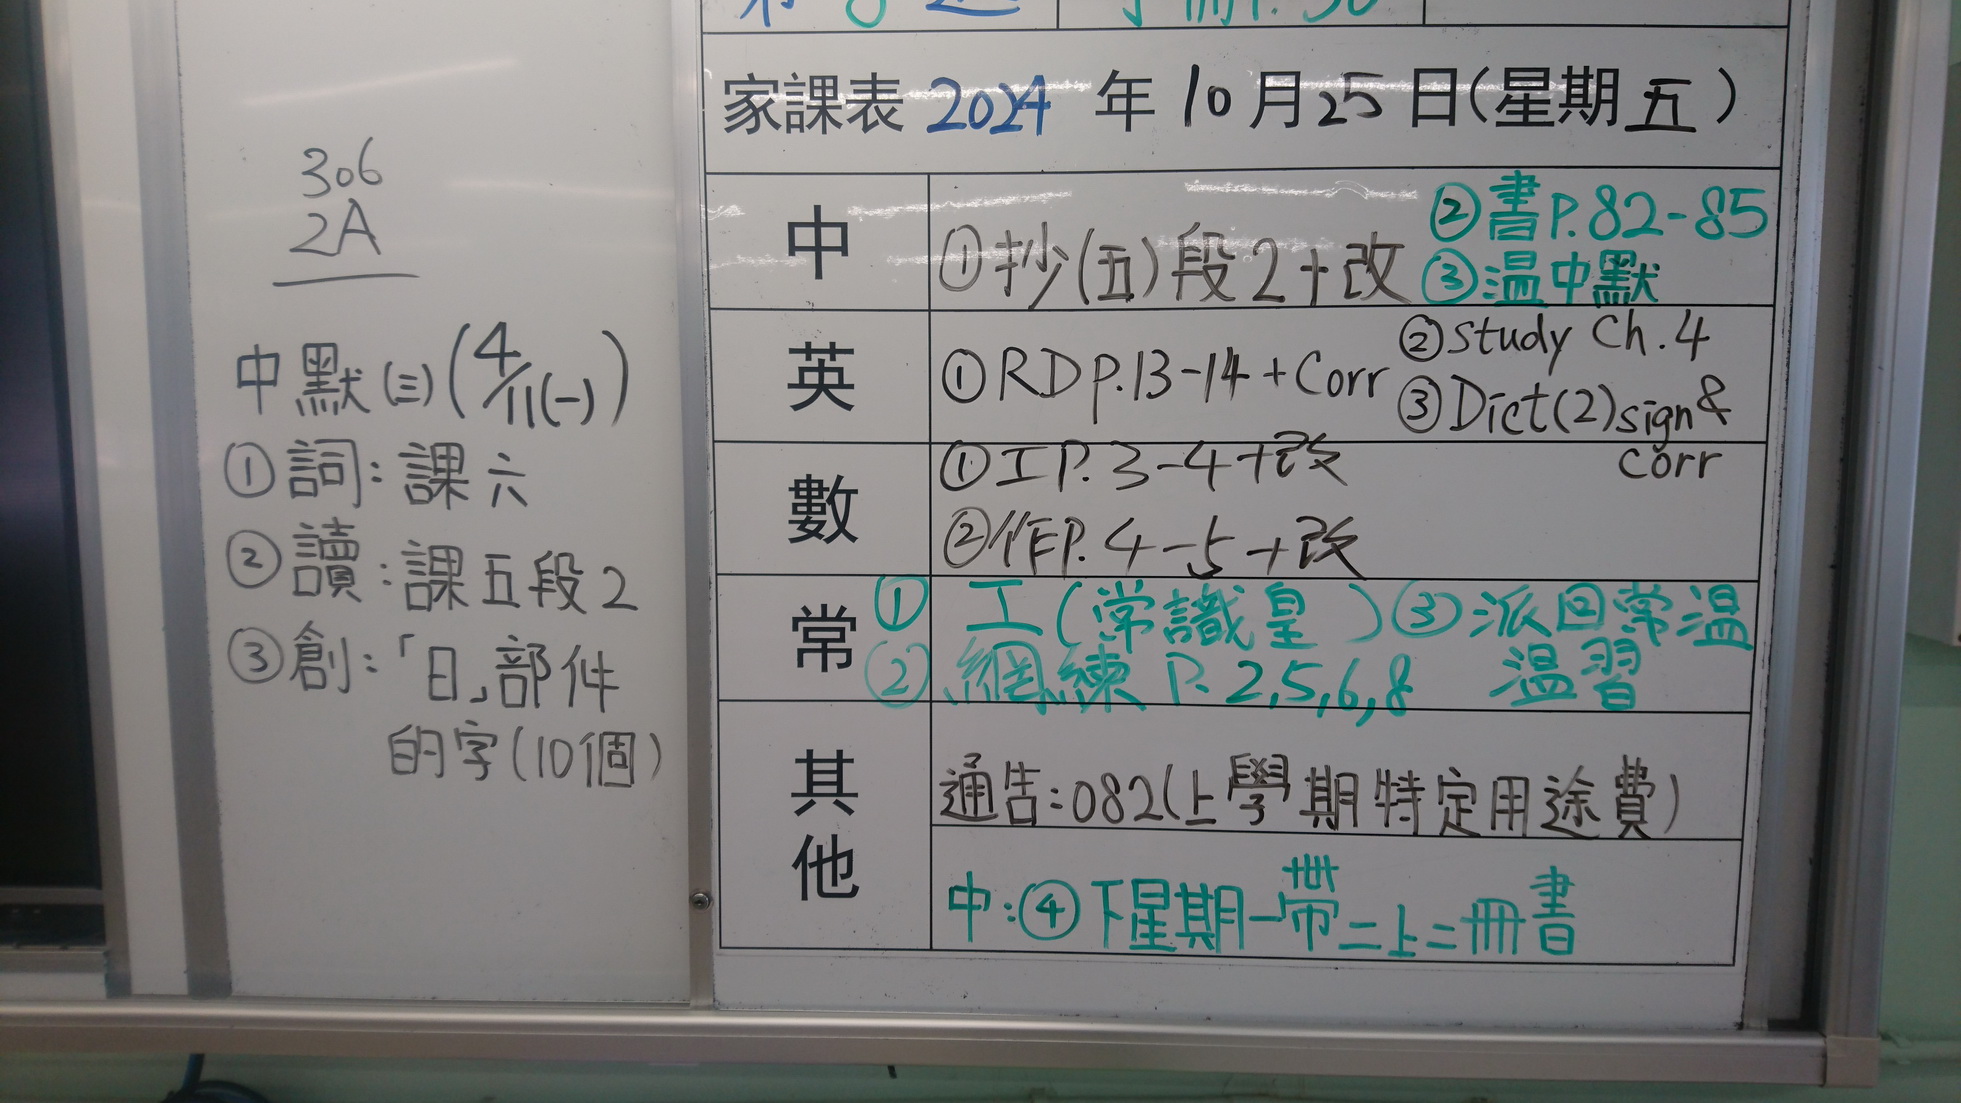 306
2A
中默(三)(4/11(一))
①詞：課六
②讀：課五段2
③創：「日」部件
的字(10個)
家課表 2024 年 10 月 25 日(星期 五 )
中
①抄(五)段2+改
②書P.82-85
③溫中默
英
①RD P.13-14 + Corr
②Study Ch.4
③Dict(2)sign&
corr
數
①工P.3-4+改
②作P.4-5+改
常
①工(常識皇)③派回常溫
②網練 P.2,5,6,8 溫習
其他
通告：082(上學期特定用途費)
中：④下星期一帶二上二冊書